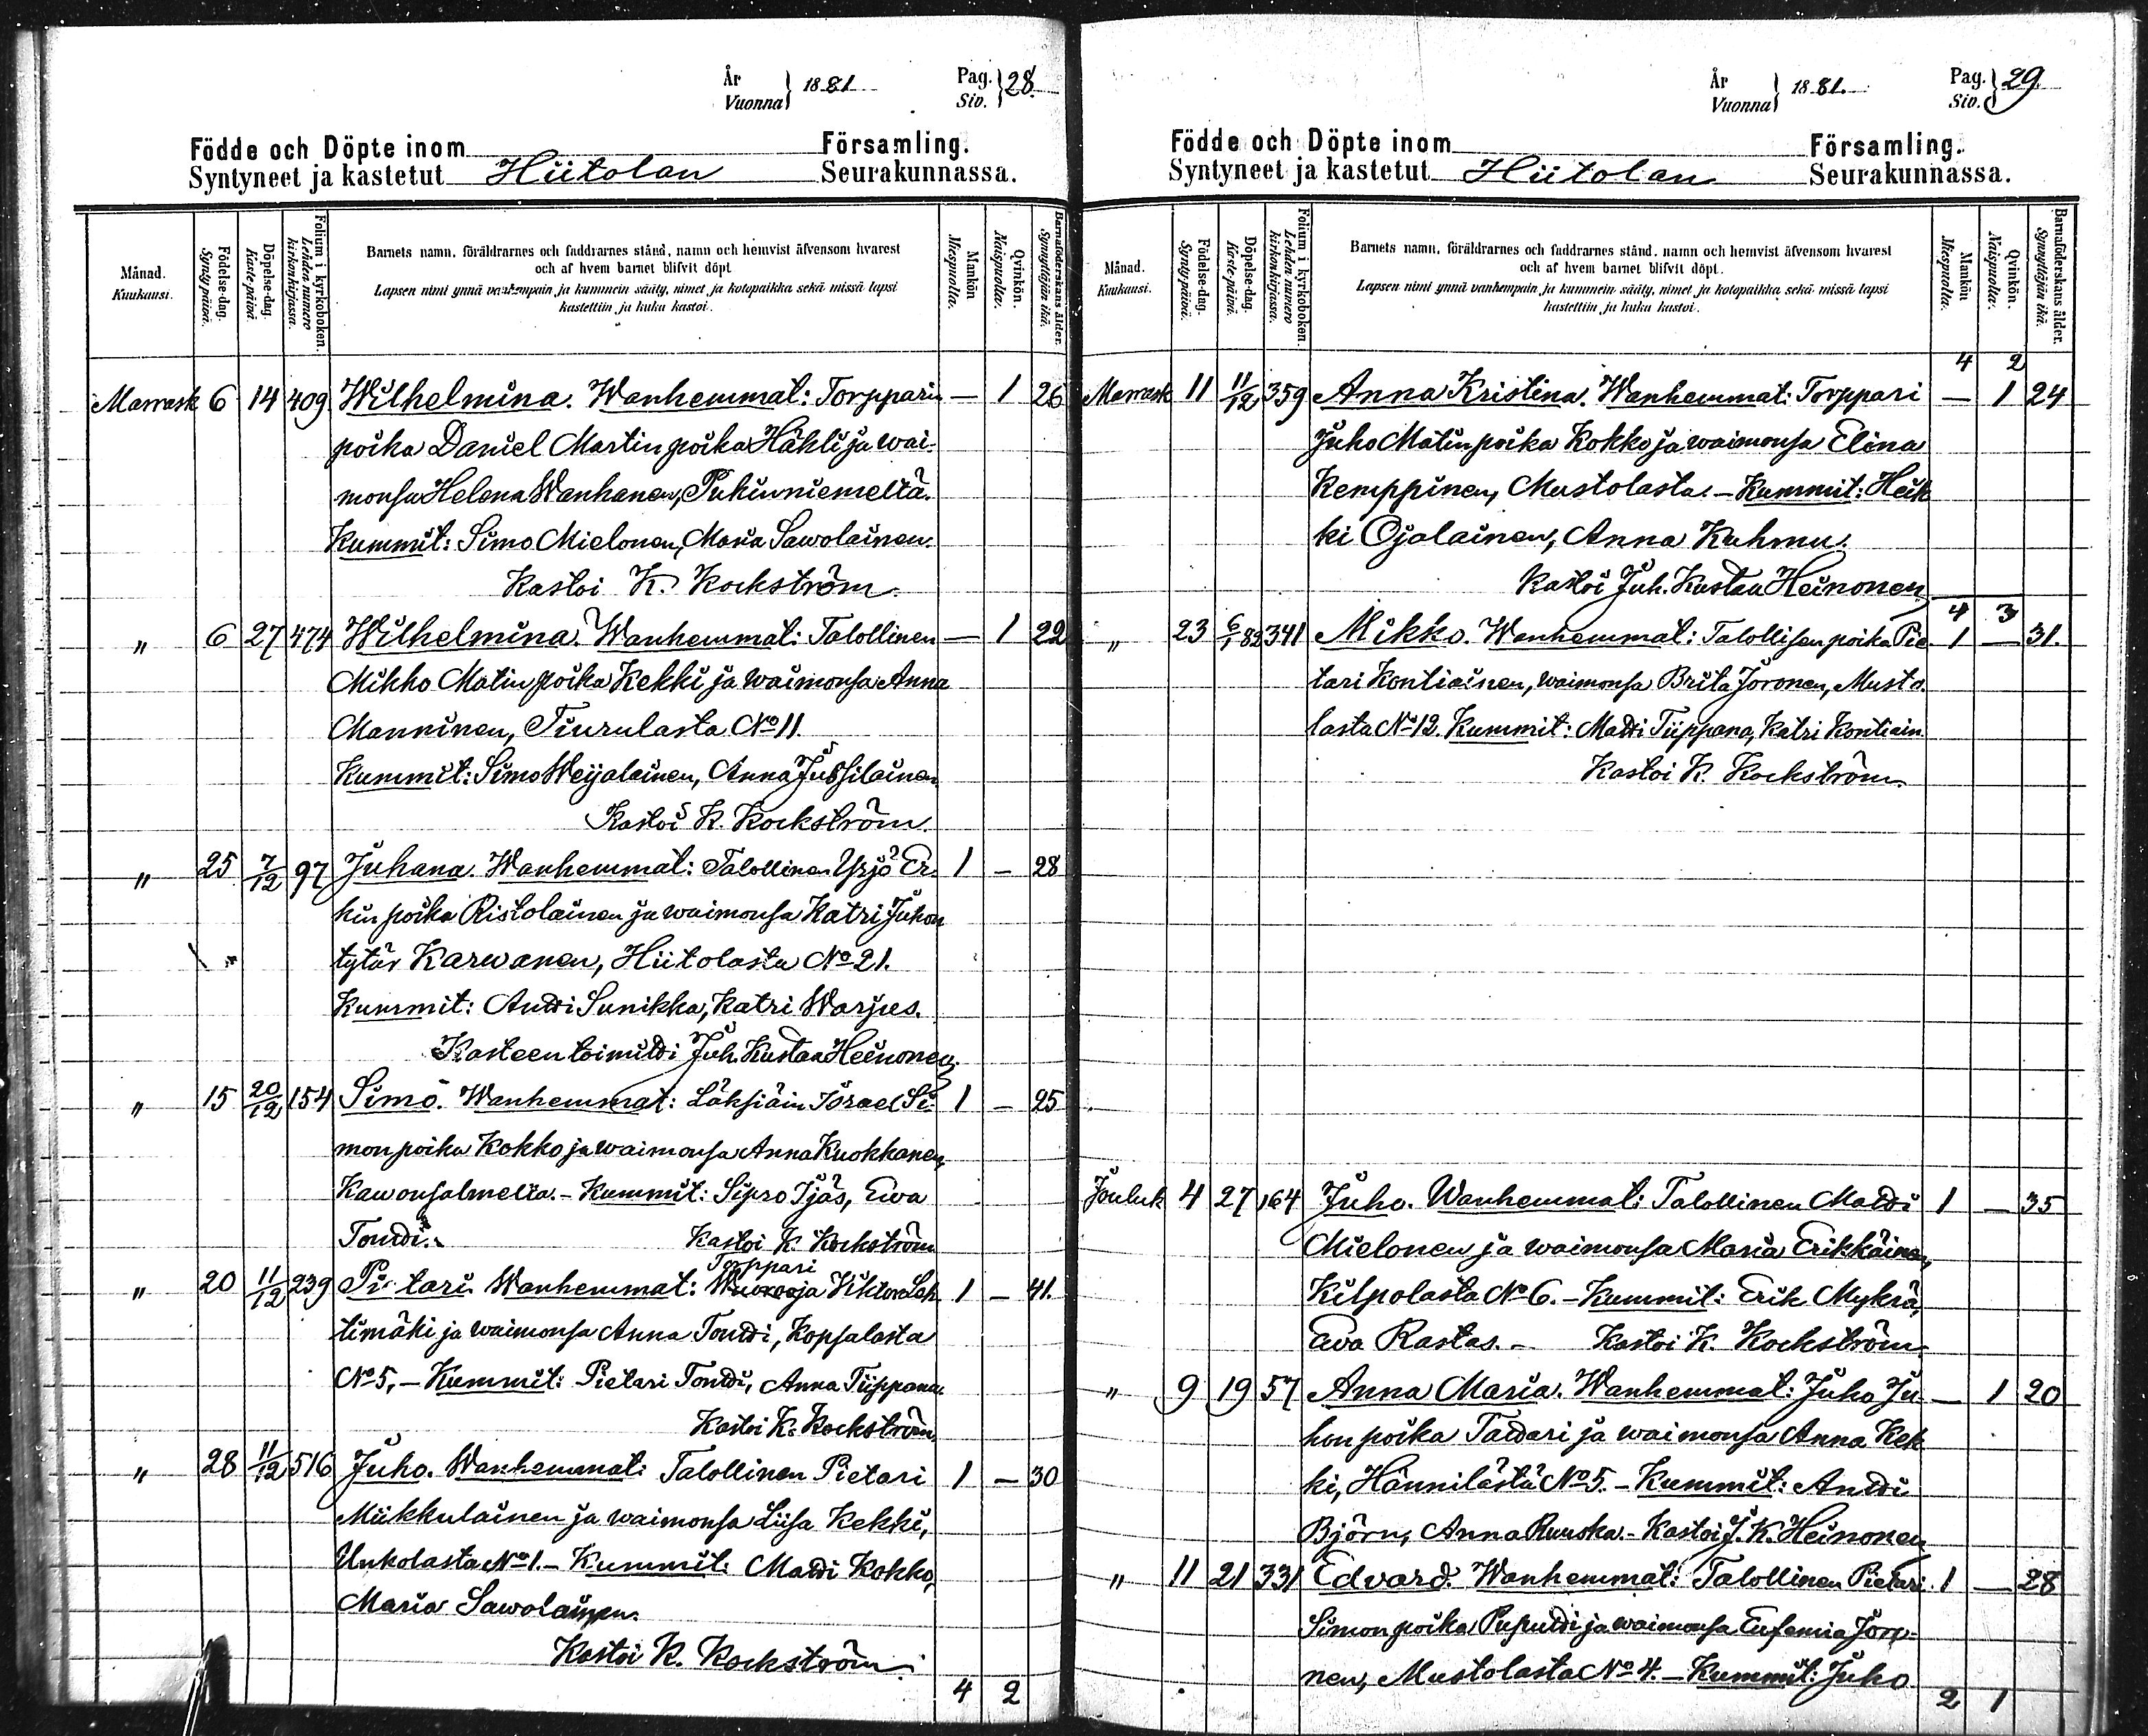 År
Vuonna } 1881
Pag.
Siv. } 28.
Födde och Döpte inom Församling.
Syntyneet ja kastetut Hiitolan Seurakunnassa.
Månad.
Kuukausi.
Födelse-dag.
Syntypäivä.
Döpelse-dag.
Kastepäivä.
Folium i kyrkoboken.
Lehden numero kirkonkirjassa.
Barnets namn, föräldrarnes och faddrarnes stånd, namn och hemvist äfvensom hvarest
och af hvem barnet blifvit döpt
Lapsen nimi ynnä vanhempain ja kummein sääty, nimet ja kotopaikka sekä missä lapsi
kastettiin ja kuka kastoi.
Mankön
Miespuolta.
Qvinkön.
Naispuolta.
Barnaföderskans ålder.
Synnyttäjän ikä.
Marrask 6 14 409 Wilhelmina. Wanhemmat: Torpparin — 1 26
poika Daniel Martinpoika Hähli ja wai-
monsa Helena Wanhanen, Pukinniemeltä.
Kummit: Simo Mielonen, Maria Sawolainen.
Kastoi K. Kockström.
" 6 27 474 Wilhelmina. Wanhemmat: Talollinen — 1 22
Mikko Matinpoika Kekki ja waimonsa Anna
Manninen, Tiurulasta No 11.
Kummit: Simo Weijalainen, Anna Jussilainen
Kastoi K. Kockström.
" 25 7/12 97 Juhana. Wanhemmat: Talollinen Yrjö Er- 1 — 28
kin poika Ristolainen ja waimonsa Katri Juhon
tytär Karwanen, Hiitolasta No 21.
Kummit: Antti Sunikka, Katri Warjus.
Kasteen toimitti Juh. Kustaa Heinonen.
" 15 20/12 154 Simo. Wanhemmat: Läksiäin Israel Si- 1 — 25
monpoika Kokko ja waimonsa Anna Kuokkanen,
Kawonsalmelta. - Kummit: Sipro Ijäs, Ewa
Tontti. Kastoi K. Kockström
Torppari
" 20 11/12 239 Pietari. Wanhemmat: Wiktor Lah- 1 — 41.
timäki ja waimonsa Anna Tontti, Kopsalasta
No 5, - Kummit: Pietari Tontti, Anna Tiippana.
Kastoi K. Kockström.
" 28 11/12 516 Juho. Wanhemmat: Talollinen Pietari 1 — 30
Miikkulainen ja waimonsa Liisa Kekki,
Unkolasta No 1. - Kummit: Matti Kokko,
Maria Sawolainen.
Kastoi K. Kockström.
4 2
År
Vuonna } 1881.
Pag.
Siv. } 29.
Födde och Döpte inom Församling.
Syntyneet ja kastetut Hiitolan Seurakunnassa.
Månad.
Kuukausi.
Födelse-dag.
Syntypäivä.
Döpelse-dag.
Kastepäivä.
Folium i kyrkoboken.
Lehden numero kirkonkirjassa.
Barnets namn, föräldrarnes och faddrarnes stånd, namn och hemvist äfvensom hvarest
och af hvem barnet blifvit döpt.
Lapsen nimi ynnä vanhempain ja kummein sääty, nimet ja kotopaikka sekä missä lapsi
kastettiin ja kuka kastoi.
Mankön
Miespuolta.
Qvinkön.
Naispuolta.
Barnaföderskans ålder.
Synnyttäjän ikä.
4 2
Marrask 11 11/12 359 Anna Kristina. Wanhemmat: Torppari — 1 24
Juho Matinpoika Kokko ja waimonsa Elina
Kemppinen, Mustolasta. - Kummit: Heik
ki Ojalainen, Anna Kuhmu.
Kastoi Juh. Kustaa Heinonen
4 3
" 23 6/1 82 341 Mikko. Wanhemmat: Talollisen poika Pie- 1 — 31.
tari Kontiainen, waimonsa Brita Joronen, Musto-
lasta No 12. Kummit: Matti Tiippana, Katri Kontiain
Kastoi K. Kockström.
Jouluk 4 27 164 Juho. Wanhemmat: Talollinen Matti 1 — 35
Mielonen ja waimonsa Maria Erikkäinen,
Kilpolasta No 6. - Kummit: Erik Mykrä,
Ewa Rastas. - Kastoi K. Kockström.
" 9 19 57 Anna Maria. Wanhemmat: Juho Ju- — 1 20
hon poika Tattari ja waimonsa Anna Kek
ki, Hännilästä No 5. - Kummit: Antti
Björn, Anna Ruuska. - Kastoi J. K. Heinonen
" 11 21 331 Edvard. Wanhemmat: Talollinen Pietari 1 — 28
Simonpoika Puputti ja waimonsa Eufemia Joro-
nen, Mustolasta No 4. - Kummit: Juho
2 1